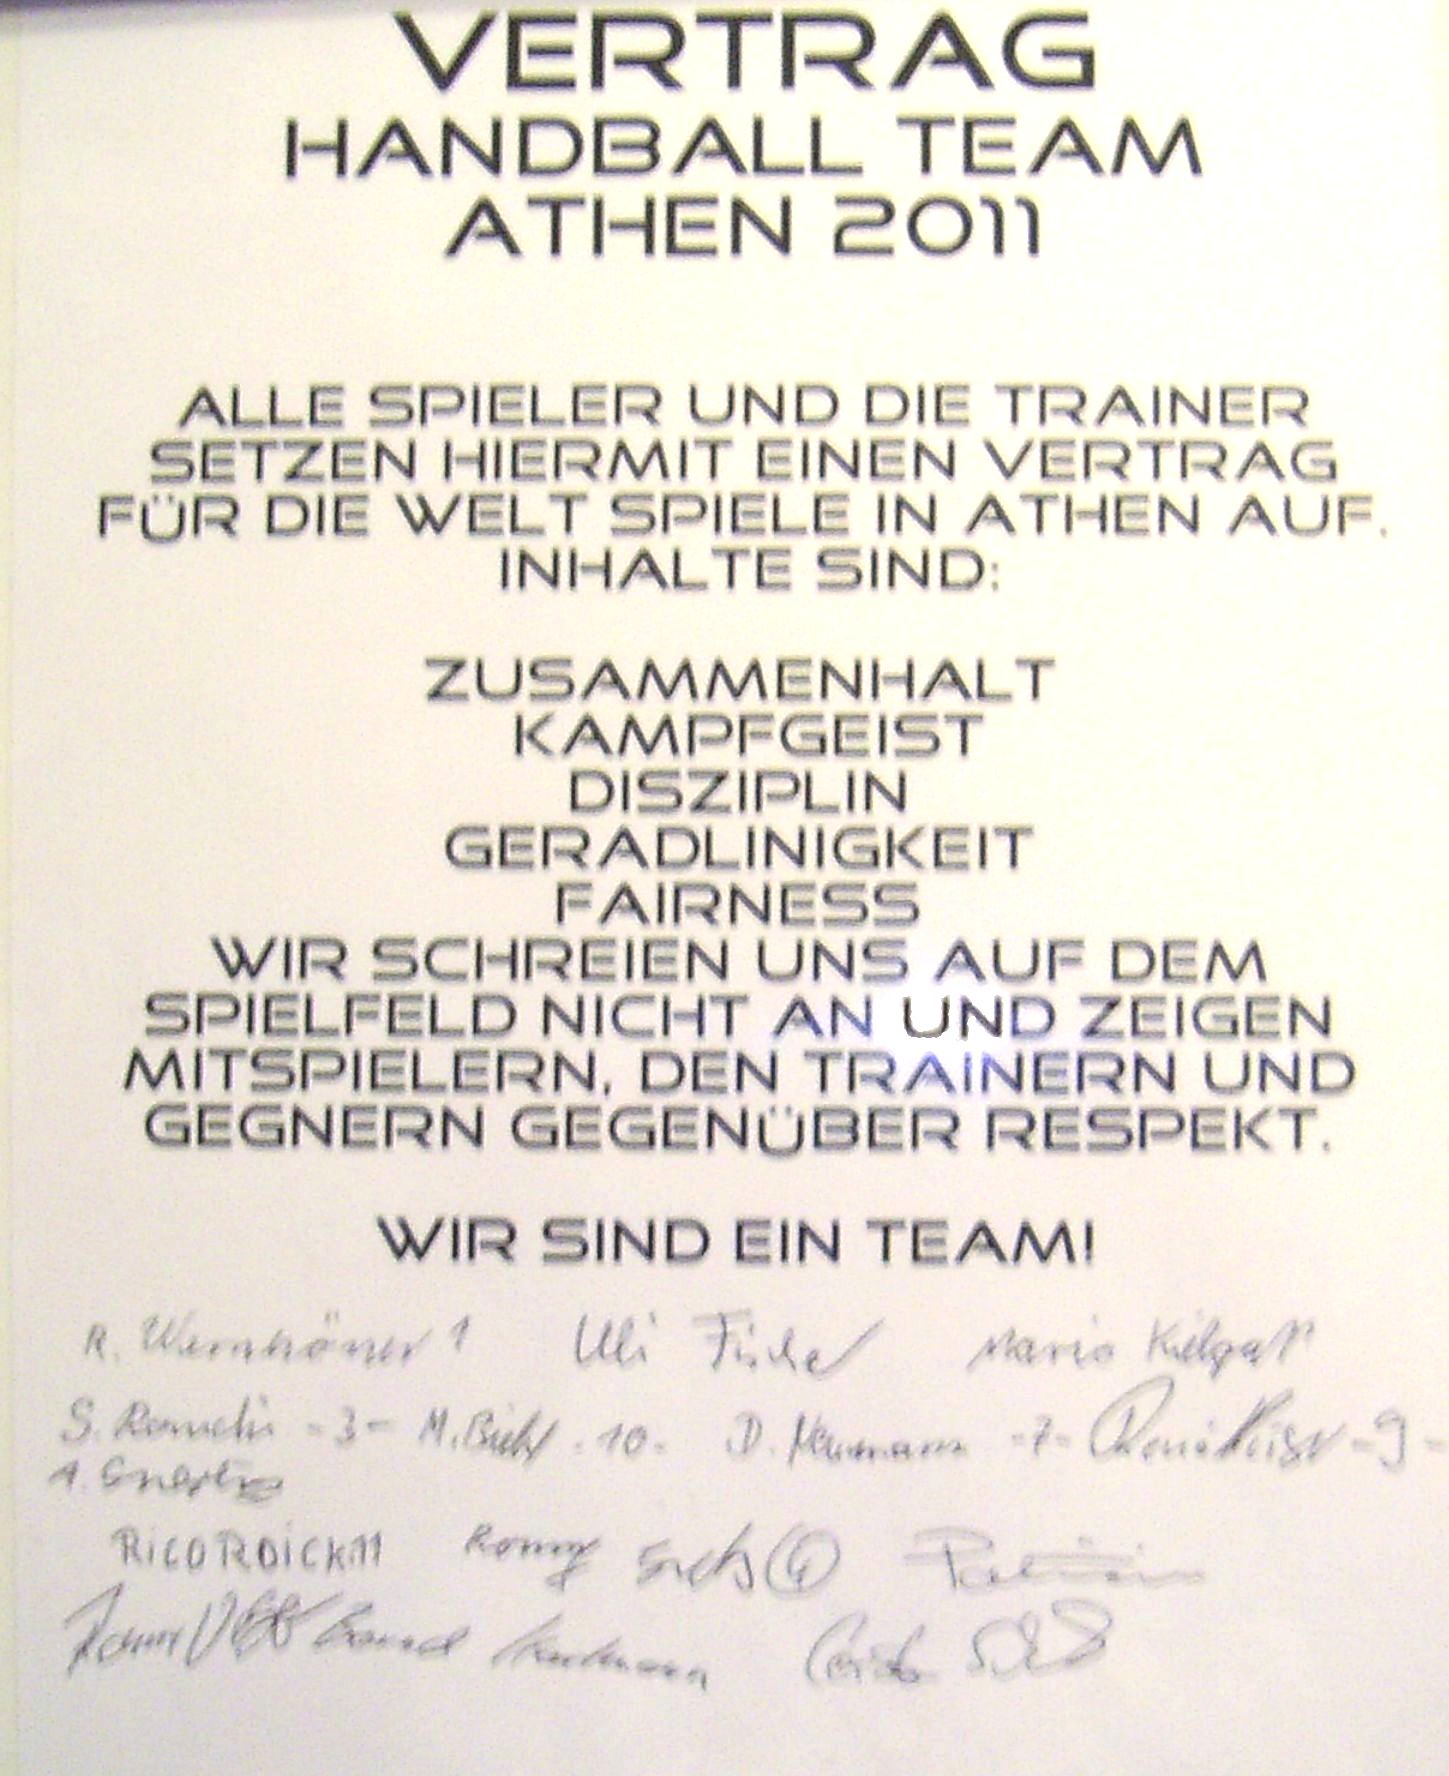 VERTRAG
HANDBALL TEAM
ATHEN 2011
ALLE SPIELER UND DIE TRAINER
SETZEN HIERMIT EINEN VERTRAG
FÜR DIE WELT SPIELE IN ATHEN AUF.
INHALTE SIND:
ZUSAMMENHALT
KAMPFGEIST
DISZIPLIN
GERADLINIGKEIT
FAIRNESS
WIR SCHREIEN UNS AUF DEM
SPIELFELD NICHT AN UND ZEIGEN
MITSPIELERN, DEN TRAINERN UND
GEGNERN GEGENÜBER RESPEKT.
WIR SIND EIN TEAM!
R. 1 Uli Fischer Mario
S. -3- M. -10- D. Neumann -7- -9-
RICO 11 Ronny